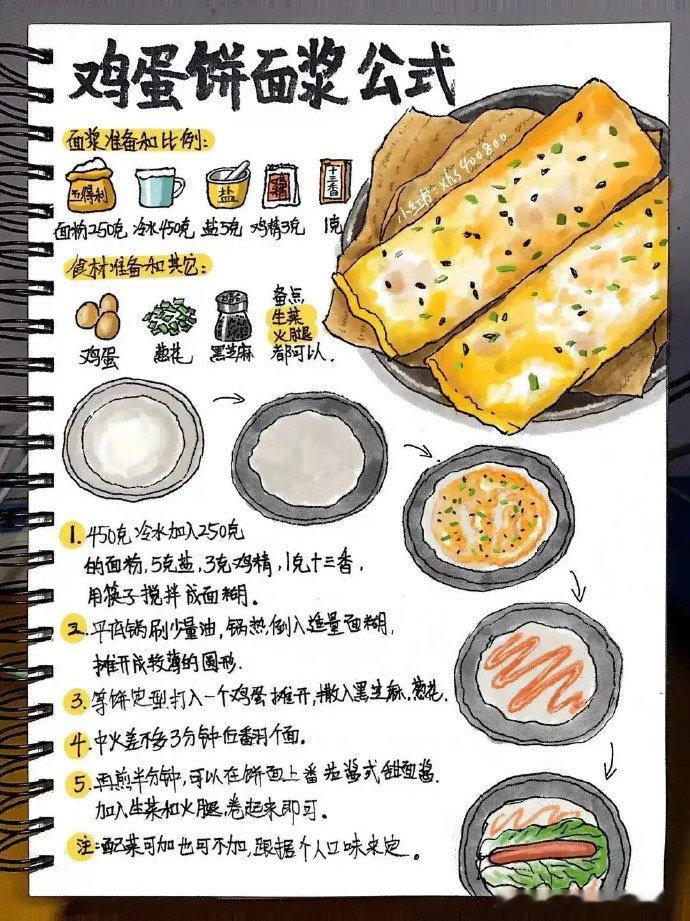 鸡蛋饼面浆公式
面浆准备和比例:
五得利
盐
鸡精
十三香
面粉250克 冷水450克 盐5克 鸡精3克 1克
小红书:xhs400800
食材准备和其它:
鸡蛋 葱花 黑芝麻
备点
生菜
火腿
都可以.
1. 450克冷水加入250克
的面粉,5克盐,3克鸡精,1克十三香,
用筷子搅拌成面糊。
2. 平底锅刷少量油,锅热倒入适量面糊,
摊开成较薄的圆形.
3. 等饼定型打入一个鸡蛋摊开,撒入黑芝麻,葱花.
4. 中火差不多3分钟后翻个面.
5. 再煎半分钟,可以在饼面上番茄酱或甜面酱.
加入生菜和火腿,卷起来即可.
注:配菜可加也可不加,跟据个人口味来定。